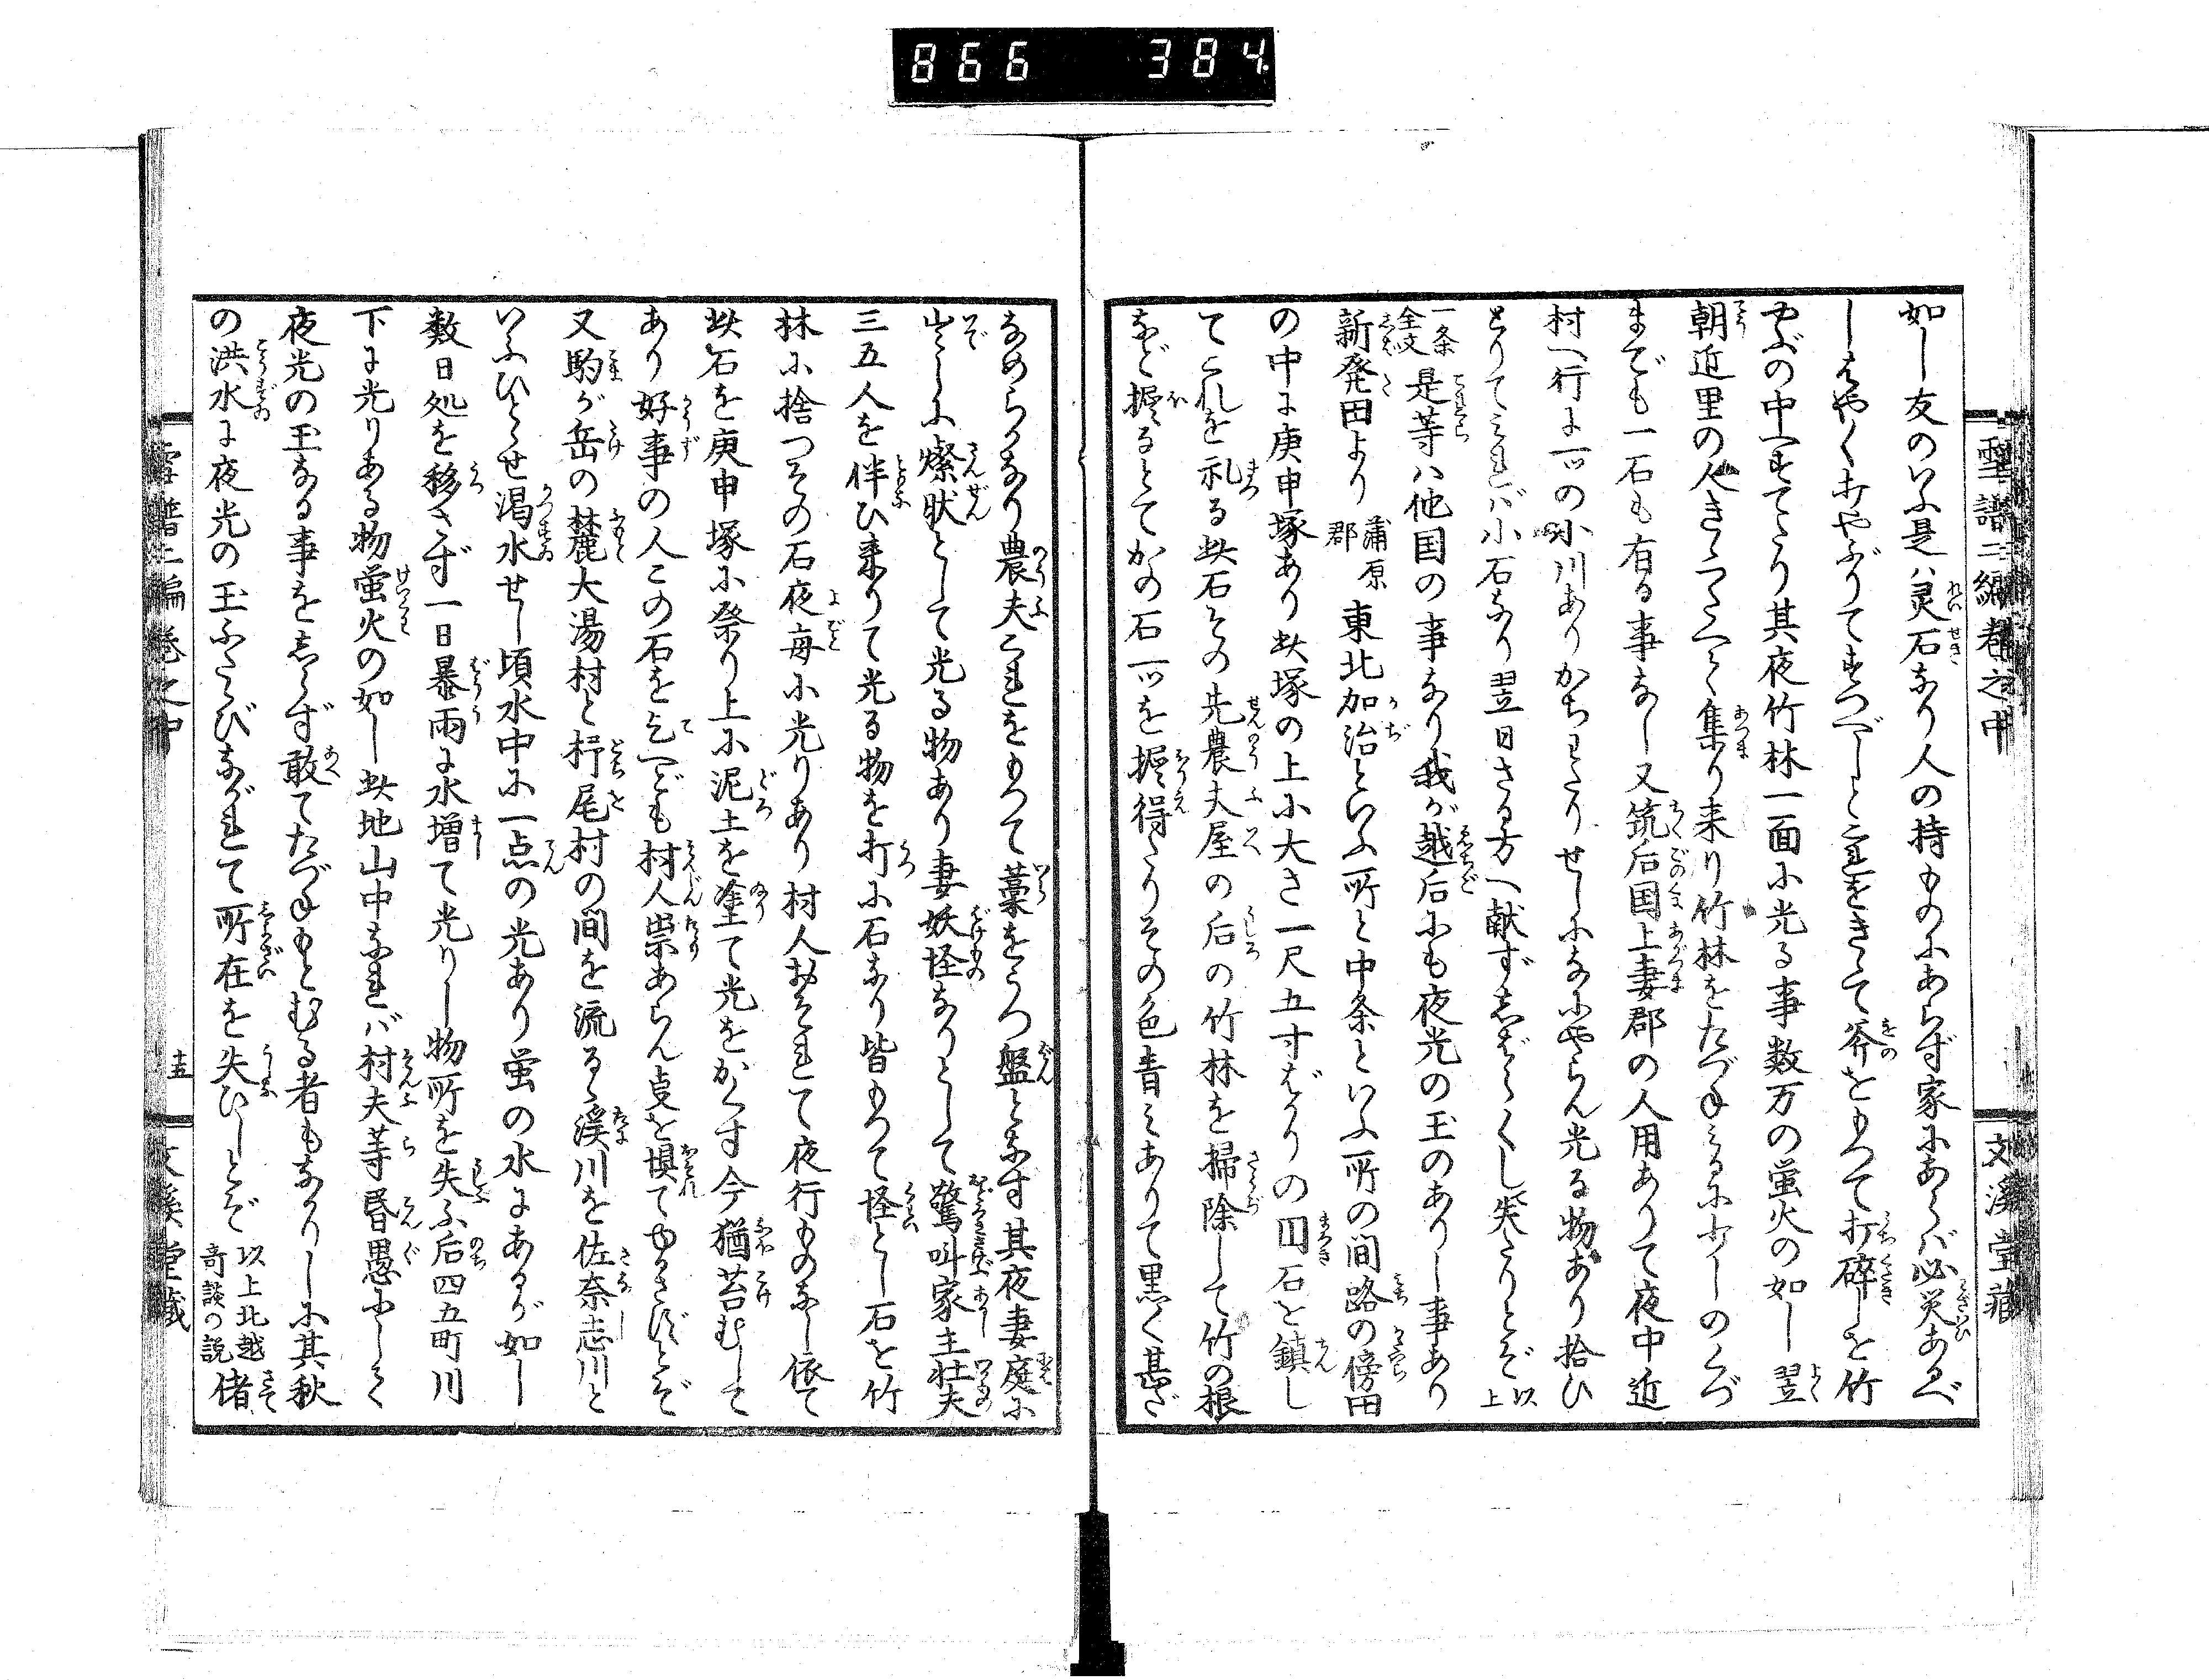 866 384
雪譜二編巻之中
文溪堂蔵
如し友のいふ是ハ灵石なり人の持ものにあらず家にあらバ必災あるべ
しはやく打やぶりてすつべしとこれをきゝて斧をもつて打碎しを竹
やぶの中へすてたり其夜竹林一面に光る事数万の蛍火の如し翌
朝近里の人きゝつたへく集り来り竹林をたづねみるに少しのくづ
までも一石も有る事なし又筑后国上妻郡の人用ありて夜中近
村へ行に一ツの小川ありかちわたりせしになにやらん光る物あり拾ひ
とりてみれバ小石なり翌日さる方へ献ずしばらくし失たりとぞ 以上
一条全文 是等ハ他国の事なり我が越后にも夜光の玉のありし事あり
新発田より 蒲原郡 東北加治といふ所と中条といふ所の間路の傍田
の中に庚申塚あり此塚の上に大さ一尺五寸ばかりの囬石を鎮し
てこれを礼る此石その先農夫屋の后の竹林を掃除して竹の根
など掘るとてかの石一ツを掘得たりその色青みありて黒く甚だ
なめらかなり農夫これをもつて藁をうつ盤となす其夜妻庭に
出しに燦然として光る物あり妻妖怪なりとして驚叫家主壮夫
三五人を伴ひ来りて光る物を打に石なり皆もつて怪とし石を竹
林に捨つその石夜毎に光りあり村人おそれて夜行ものなし依て
此石を庚申塚に祭り上に泥土を塗て光をかくす今猶苔むして
あり好事の人この石を乞へども村人祟あらん㕝を惧てゆるさずとぞ
又駒が岳の麓大湯村と栃尾村の間を流るゝ渓川を佐奈志川と
いふひとゝせ渇水せし頃水中に一点の光あり蛍の水にあるが如し
数日処を移さず一日暴雨に水増て光りし物所を失ふ后四五町川
下に光りある物蛍火の如し此地山中なれバ村夫等昏愚にしてく
夜光の玉なる事をしらず敢てたづねもとむる者もなかりしに其秋
の洪水に夜光の玉ふたゝびながれて所在を失ひしとぞ 以上北越奇談の説 偖
雪譜二編巻之中
十五
文溪堂蔵